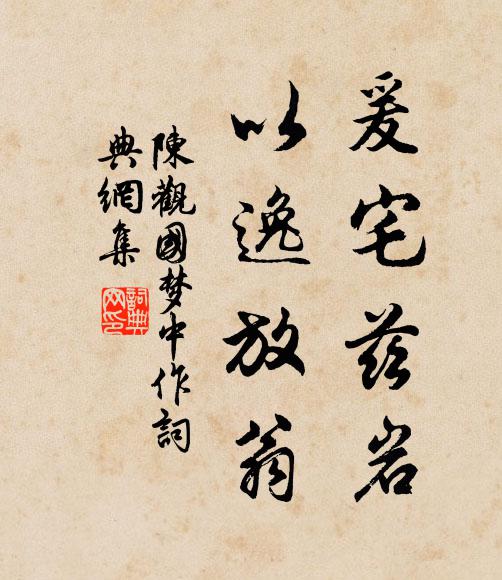 爰宅茲岩
以逸放翁
陳觀國梦中作詞
典網集
詞典网印